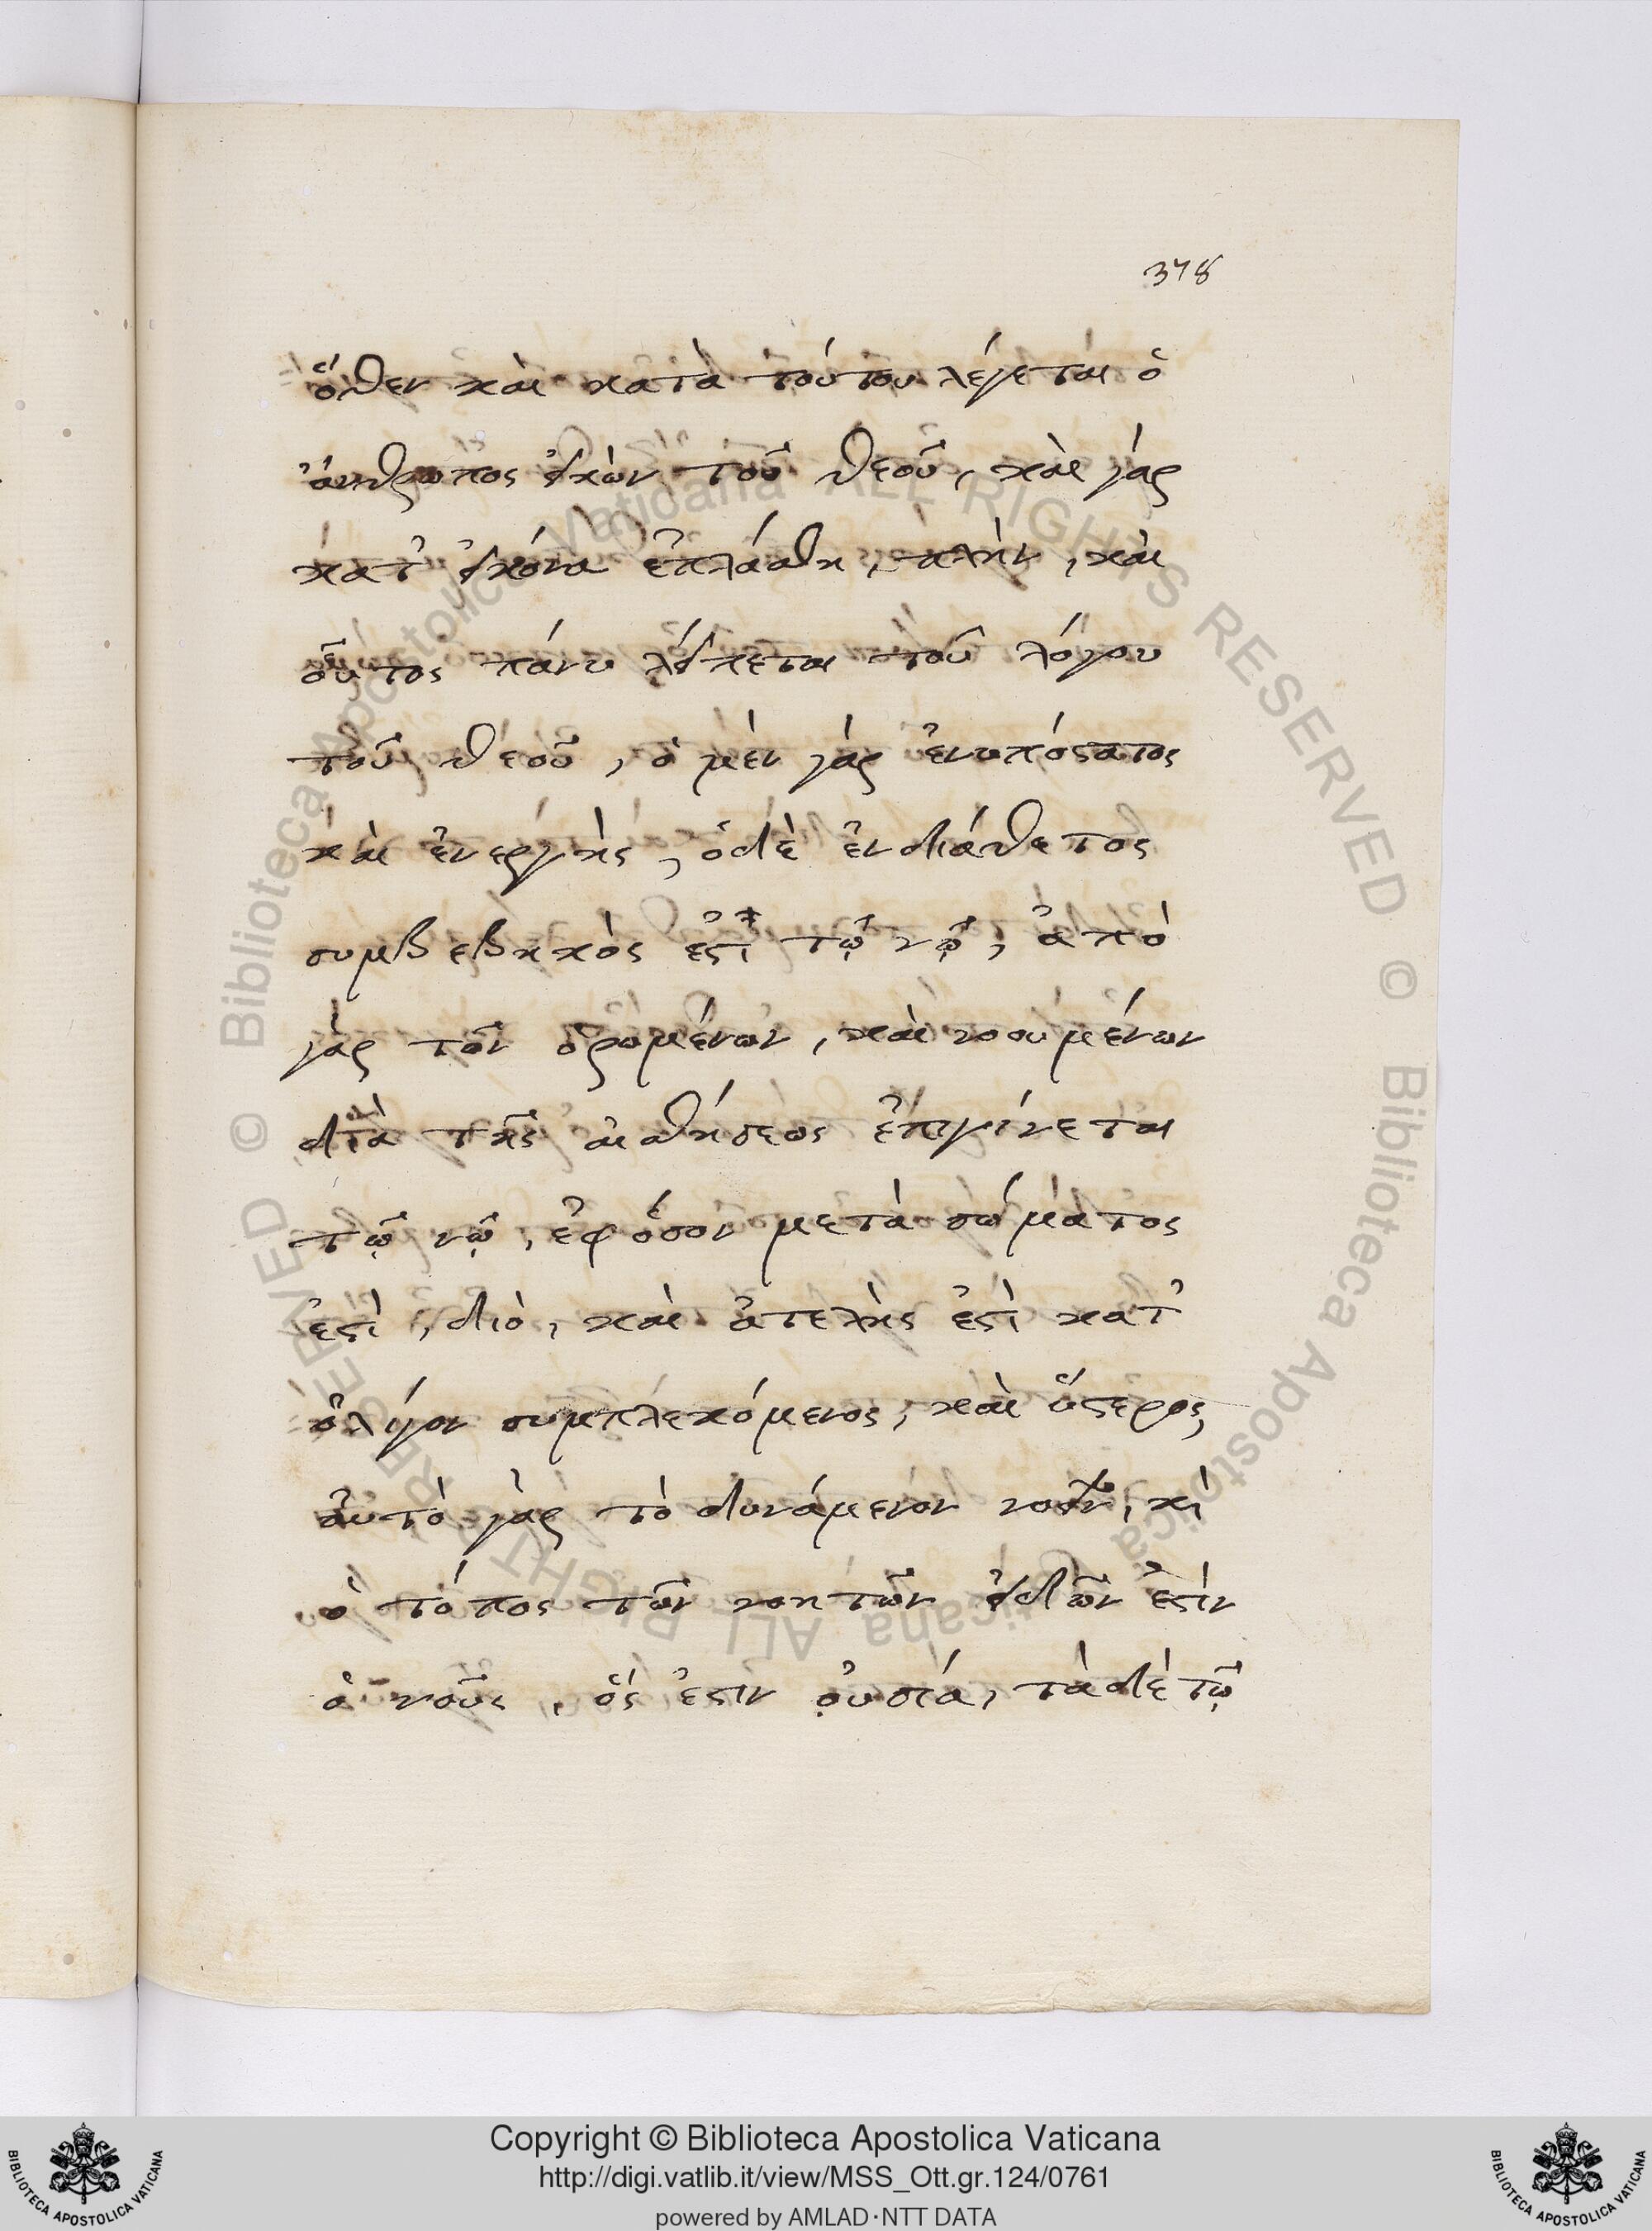 378
ὅθεν καὶ κατὰ τούτου λέγεται ὁ
ἄνθρωπος εἰκὼν τοῦ θεοῦ, καὶ γὰρ
κατ' εἰκόνα ἐπλάσθη, πλὴν, καὶ
οὗτος πάνυ λείπεται τοῦ λόγου
τοῦ θεοῦ, ὁ μὲν γὰρ ἐνυπόστατος
καὶ ἐνεργὴς, ὁ δὲ ἐνδιάθετος
συμβεβηκὸς ἐστὶ τῷ νῷ, ἀπὸ
γὰρ τῶν ὁρωμένων, καὶ νοουμένων
διὰ τῆς αἰσθήσεως ἐπιγίνεται
τῷ νῷ, ἐφόσον μετὰ σώματος
ἐστὶ, διὸ, καὶ ἀτελὴς ἐστὶ κατ'
ὀλίγον συμπλεκόμενος, καὶ ὕστερος,
αὐτὸ γὰρ τὸ δυνάμενον νοεῖν, καὶ
ὁ τόπος τῶν νοητῶν εἰδῶν ἐστὶν
ὁ νοῦς, ὅς ἐστιν οὐσία, τὰ δὲ τῷ
Copyright © Biblioteca Apostolica Vaticana
http://digi.vatlib.it/view/MSS_Ott.gr.124/0761
powered by AMLAD·NTT DATA
© Biblioteca Apostolica Vaticana ALL RIGHTS RESERVED © Biblioteca Apostolica Vaticana ALL RIGHTS RESERVED
BIBLIOTECA APOSTOLICA VATICANA
BIBLIOTECA APOSTOLICA VATICANA